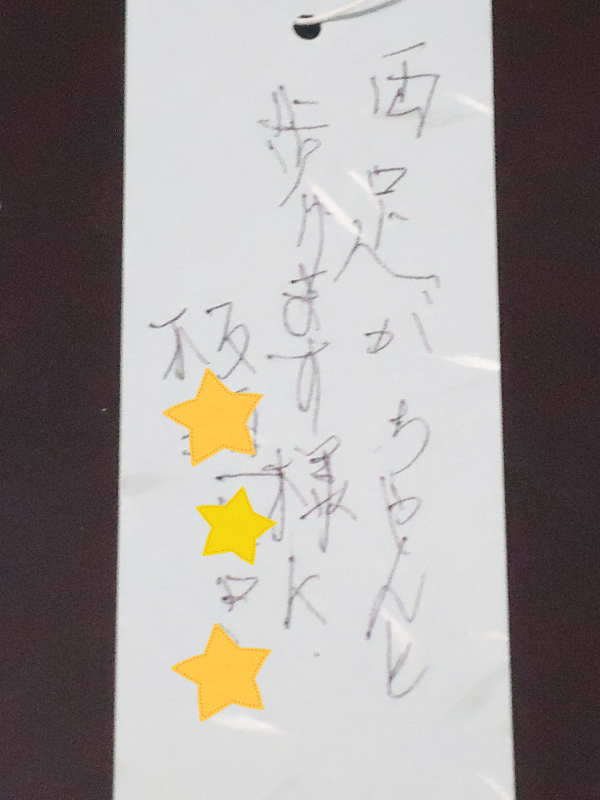 両足がちゃんと
歩けます様に
板